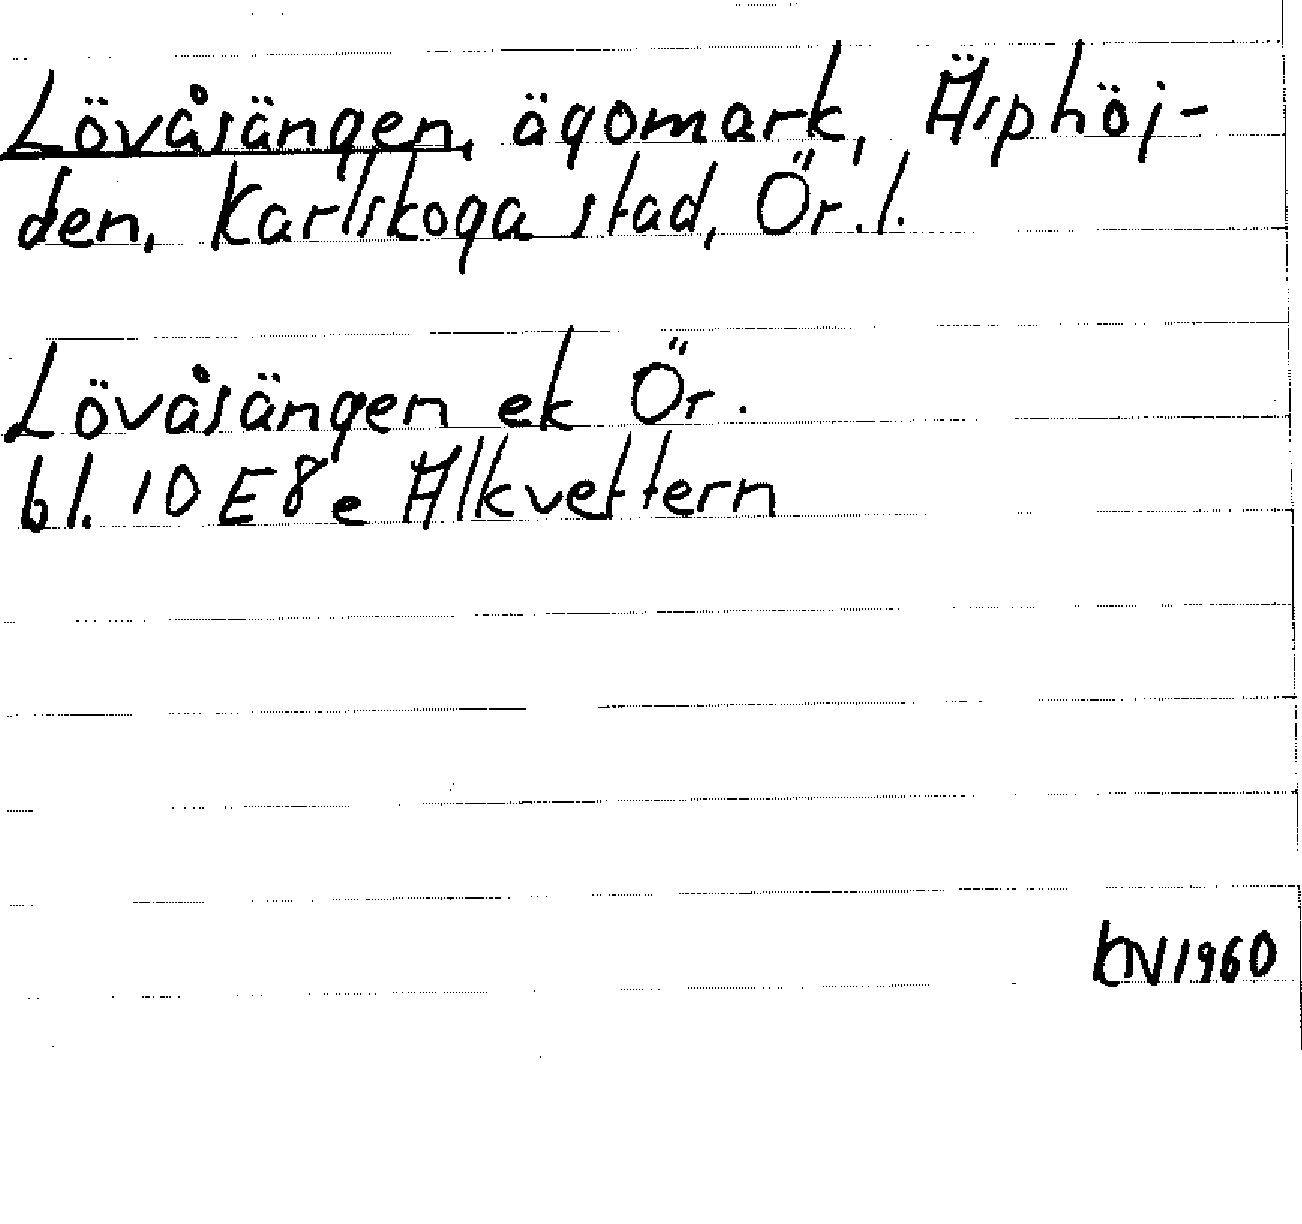 Lövåsängen, ägomark, Äsphöj-
den, Karlskoga stad, Ör. l.
Lövåsängen ek Ör.
bl. 10 E 8 e Alkvettern
KN 1960